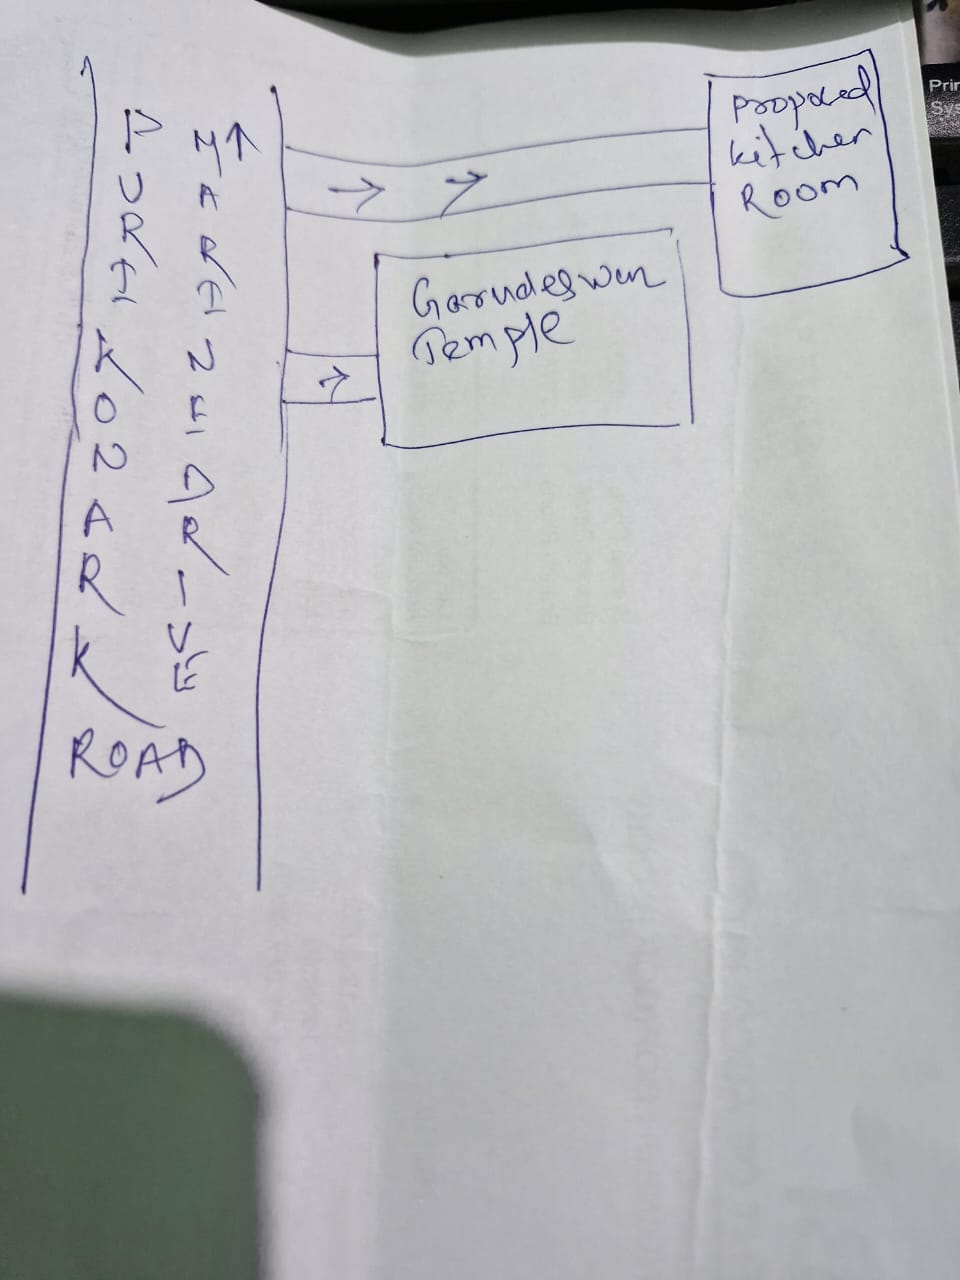 PURI KONARK
ROAD
MARINE DRIVE
Proposed
kitchen
Room
Garudeswar
Temple